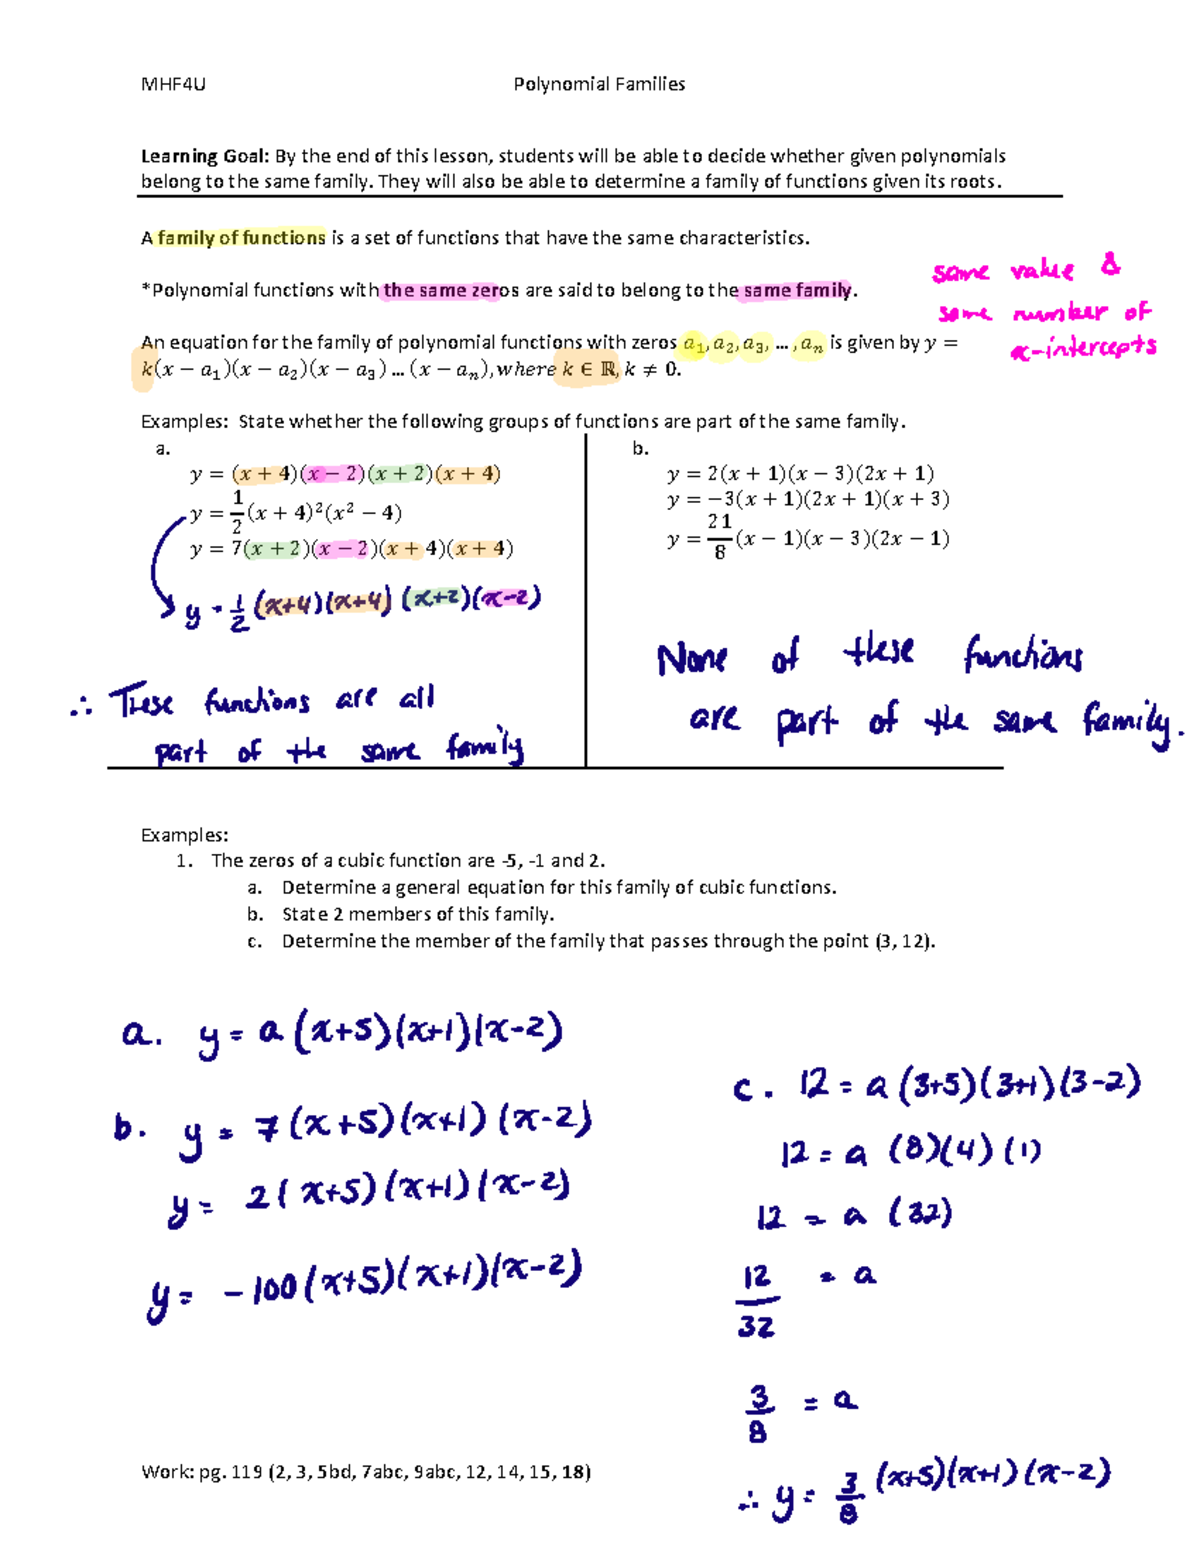 MHF4U Polynomial Families
Learning Goal: By the end of this lesson, students will be able to decide whether given polynomials
belong to the same family. They will also be able to determine a family of functions given its roots.
A family of functions is a set of functions that have the same characteristics.
same value &
*Polynomial functions with the same zeros are said to belong to the same family.
same number of
x-intercepts
An equation for the family of polynomial functions with zeros a₁, a₂, a₃, … , aₙ is given by y =
k(x − a₁)(x − a₂)(x − a₃) … (x − aₙ), where k ∈ ℝ, k ≠ 0.
Examples: State whether the following groups of functions are part of the same family.
a.
y = (x + 4)(x − 2)(x + 2)(x + 4)
y = 1/2 (x + 4)²(x² − 4)
y = 7(x + 2)(x − 2)(x + 4)(x + 4)
y = 1/2 (x+4)(x+4)(x+2)(x-2)
∴ These functions are all
part of the same family
b.
y = 2(x + 1)(x − 3)(2x + 1)
y = −3(x + 1)(2x + 1)(x + 3)
y = 21/8 (x − 1)(x − 3)(2x − 1)
None of these functions
are part of the same family.
Examples:
1. The zeros of a cubic function are -5, -1 and 2.
a. Determine a general equation for this family of cubic functions.
b. State 2 members of this family.
c. Determine the member of the family that passes through the point (3, 12).
a. y = a (x+5)(x+1)(x-2)
b. y = 7 (x+5)(x+1)(x-2)
y = 2(x+5)(x+1)(x-2)
y = -100(x+5)(x+1)(x-2)
c. 12 = a (3+5)(3+1)(3-2)
12 = a (8)(4)(1)
12 = a (32)
12/32 = a
3/8 = a
∴ y = 3/8 (x+5)(x+1)(x-2)
Work: pg. 119 (2, 3, 5bd, 7abc, 9abc, 12, 14, 15, 18)